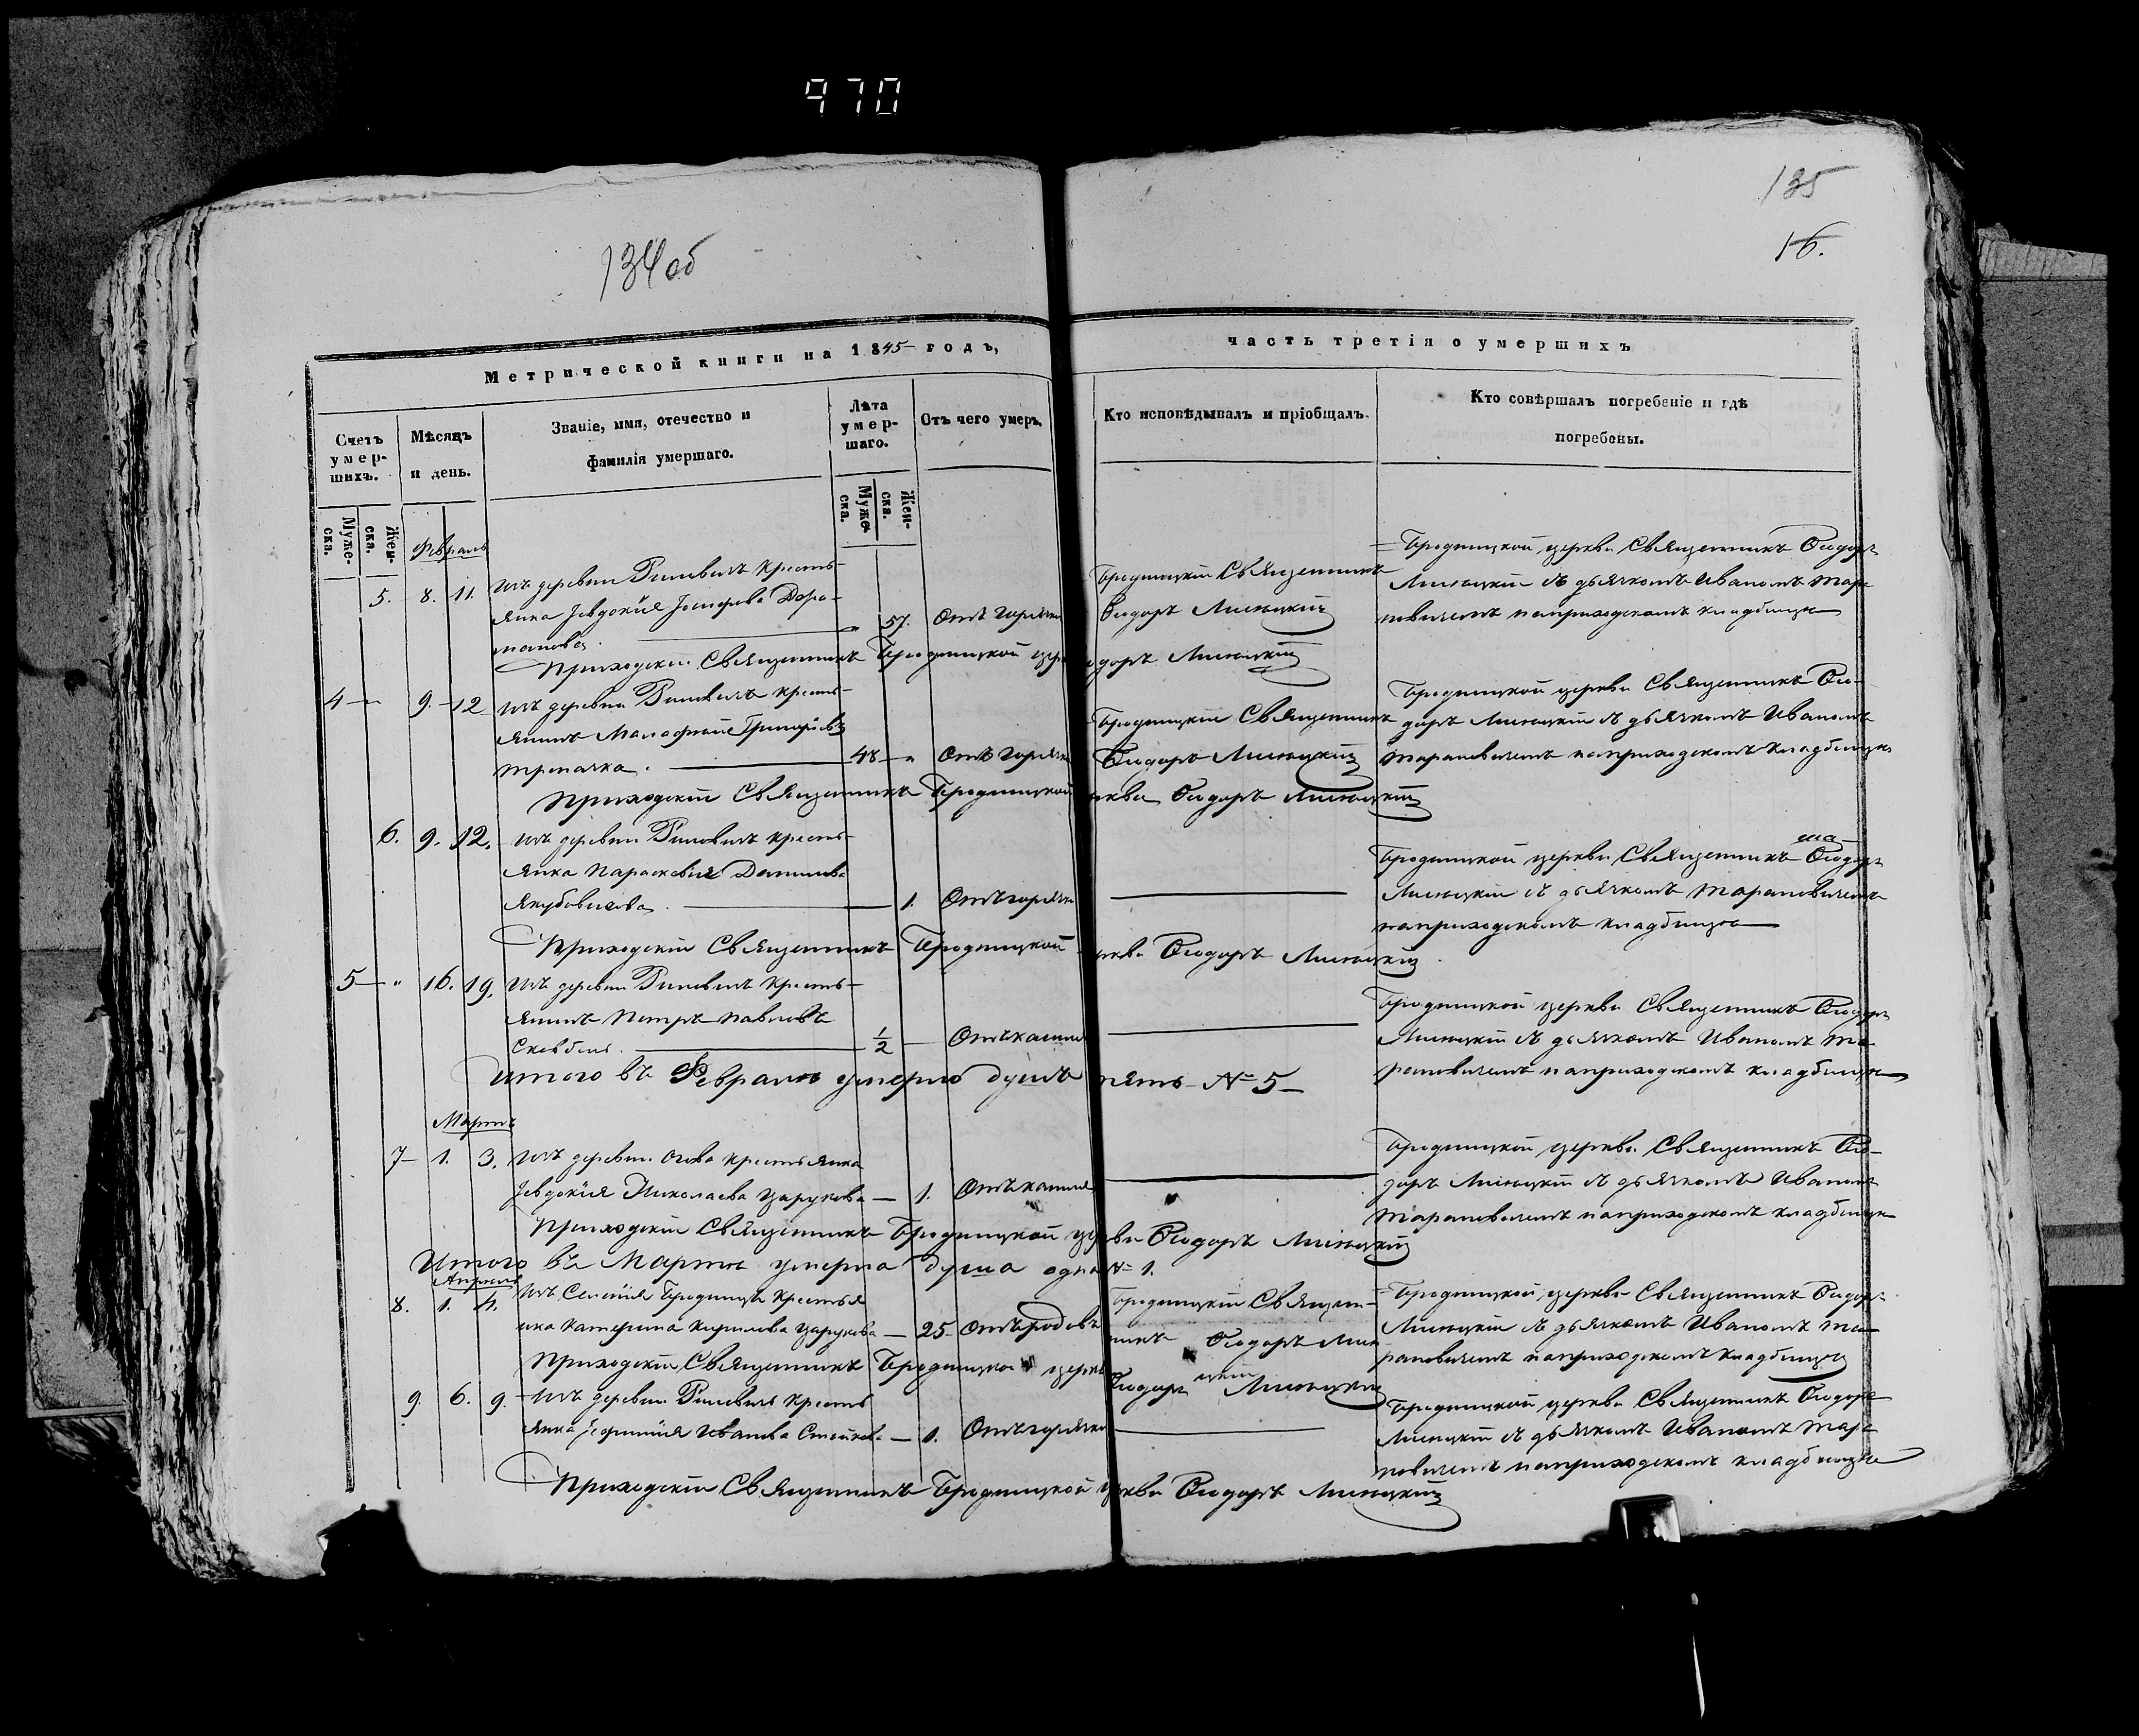 970
134об
135
16.
Метрической книги на 1845 годъ,
часть третія о умершихъ
Счетъ умер-шихъ.
Мѣсяцъ и день.
Званіе, имя, отечество и фамилія умершаго.
Лѣта умер-шаго.
Отъ чего умеръ.
Кто исповѣдывалъ и пріобщалъ.
Кто совѣршалъ погребеніе и гдѣ погребены.
Муже-ска.
Жен-ска.
Муже-ска.
Жен-ска.
Февраль
5. 8. 11. Изъ деревни Кресть-
янка Іевдокія Іосифова
57. Отъ горячки
Бродницкій Священникъ
Ѳеодоръ
Бродницкой церкви Священникъ Ѳеодоръ
съ дьячкомъ Иваномъ Тара-
новичемъ на приходскомъ кладбищѣ
Приходскій Священникъ Бродницкой Ѳеодоръ
4 — " 9. — 12 Изъ деревни Кресть-
янинъ Малафтей Григорьевъ
Трепачка. 48 — " Отъ горячки
Бродницкій Священникъ
Ѳеодоръ
Бродницкой церкви Священникъ Ѳео-
доръ съ дьячкомъ Иваномъ
Тарановичемъ на приходскомъ кладбищѣ
Приходскій Священникъ Бродницкой церкви Ѳеодоръ
6. 9. 12. Изъ деревни Кресть-
янка Параскевія Данилова
Якубовичова. 1. Отъ горячки
Бродницкой церкви Священникъ Ѳеодоръ
съ дьячкомъ Тарановичемъ
на приходскомъ кладбищѣ
Приходскій Священникъ Бродницкой церкви Ѳеодоръ
5 — " 16. 19. Изъ деревни Кресть-
янинъ Петръ Павловъ
1/2 — Отъ кашля
Бродницкой церкви Священникъ Ѳеодоръ
съ дьячкомъ Иваномъ Та-
рановичемъ на приходскомъ кладбищѣ
Итого въ Февралѣ умерло душъ пять № 5 —
Мартъ
7 — 1. 3. Изъ деревни крестьянка
Іевдокія Николаева Царукова — 1. Отъ кашля
Бродницкой церкви Священникъ Ѳео-
доръ съ дьячкомъ Иваномъ
Тарановичемъ на приходскомъ кладбищѣ
Приходскій Священникъ Бродницкой церкви Ѳеодоръ
Итого въ Мартѣ умерла душа одна № 1.
Апрель
8. 1. 4. Изъ Селенія Бродницъ крестья
нка Катерина Кирилова Царукова — 25 — Отъ родовъ
Бродницкій Священ-
никъ Ѳеодоръ
Бродницкой церкви Священникъ Ѳеодоръ
съ дьячкомъ Иваномъ Та-
рановичемъ на приходскомъ кладбищѣ
Приходскій Священникъ Бродницкой церкви Ѳеодоръ
9. 6. 9. Изъ деревни Кресть
янка Іефимія Иванова — 1. Отъ горячки
Бродницкой церкви Священникъ Ѳеодоръ
съ дьячкомъ Иваномъ Тара-
новичемъ на приходскомъ кладбищѣ
Приходскій Священникъ Бродницкой церкви Ѳеодоръ